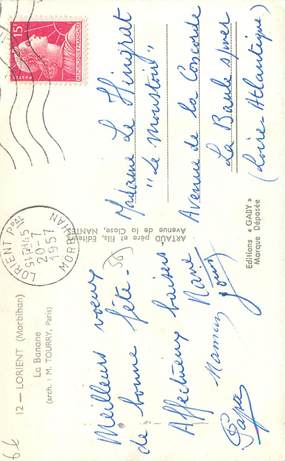 12 — LORIENT (Morbihan)
La Banane
(arch. : M. TOURRY, Paris)
Meilleurs voeux
de bonne fête -
Affectueux baisers
Papa Maman Marie
56
ARTAUD père et fils, Éditeurs
Avenue de la Close, NANTES
Editions « GABY »
Marque Déposée
LORIENT PPAL
20-7
1957
MORBIHAN
15F
Madame Le Hingrat
"Le Moustoir"
Avenue de la Concorde
La Baule s/mer
(Loire Atlantique)
66